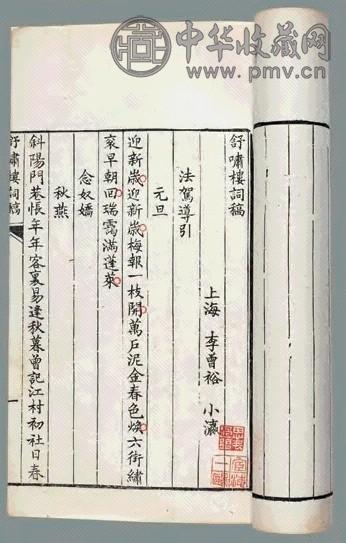 中华收藏网
www.pmv.cn
舒嘯樓詞稿
上海 李曾裕 小瀛
法駕導引
元旦
迎新歲迎新歲梅報一枝開萬戶泥金春色煥六街繡
袞早朝回瑞靄滿蓬萊
念奴嬌
秋燕
斜陽門巷悵年年容裏易逢秋暮曾記江村初社日春
舒嘯樓詞稿
一